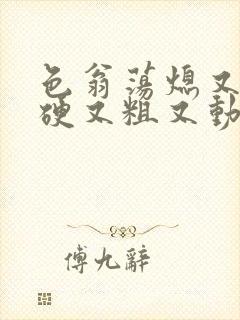 色翁荡熄又
硬又粗又動
傅九辭